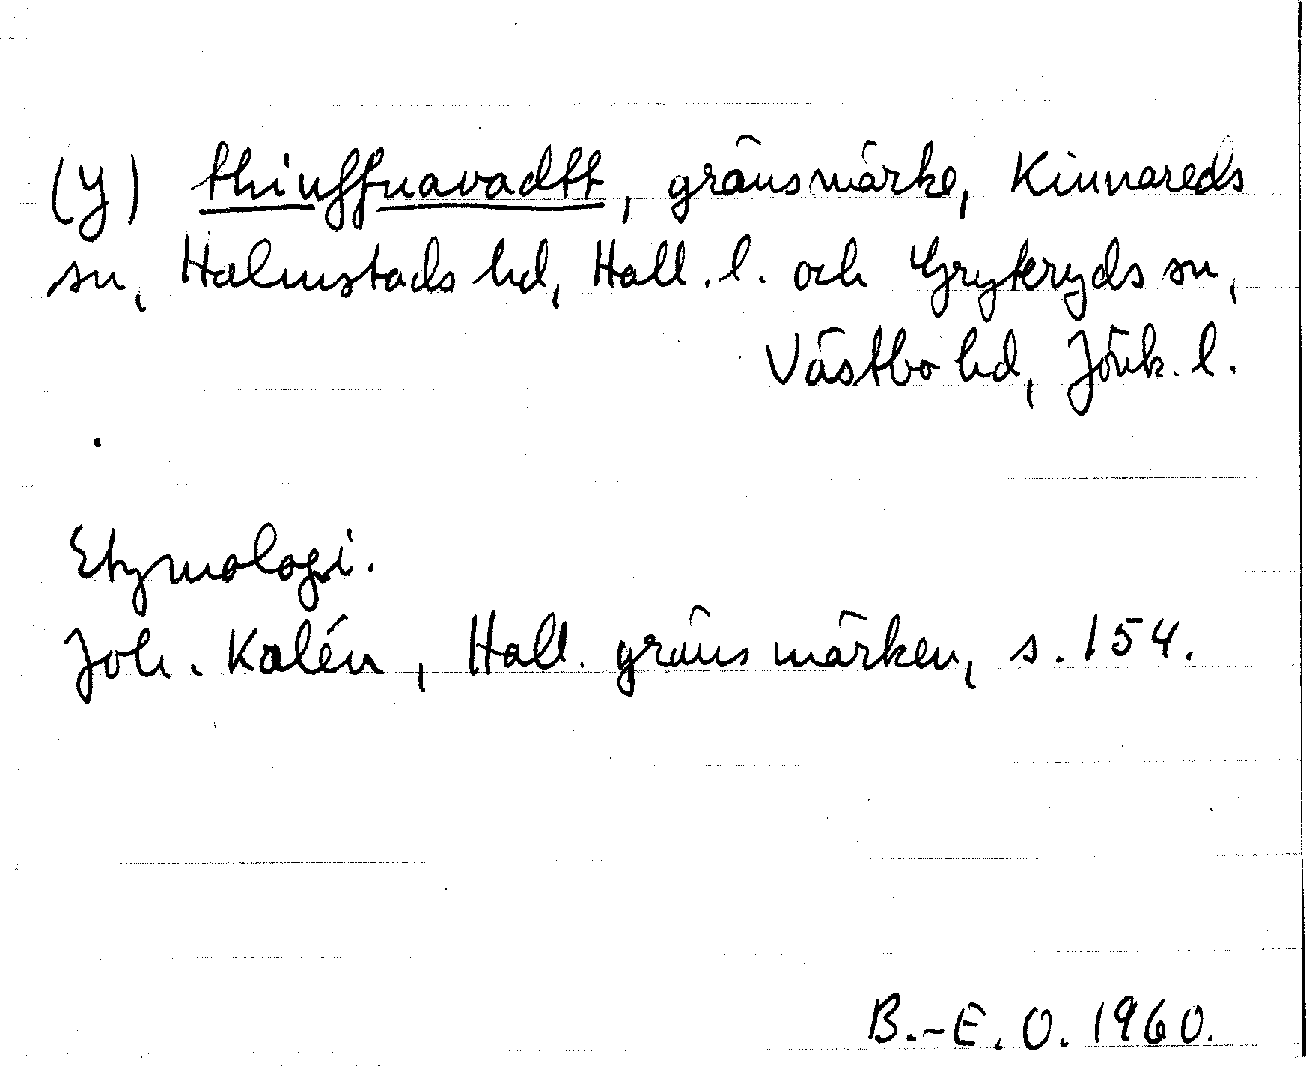 (y) thiuffnavadtt, gränsmärke, Kinnareds
sn, Halmstads hd, Hall. l. och Gryteryds sn,
Västbo hd, Jönk. l.
Etymologi.
Joh. Kalén, Hall. gränsmärken, s. 154.
B.-E. O. 1960.